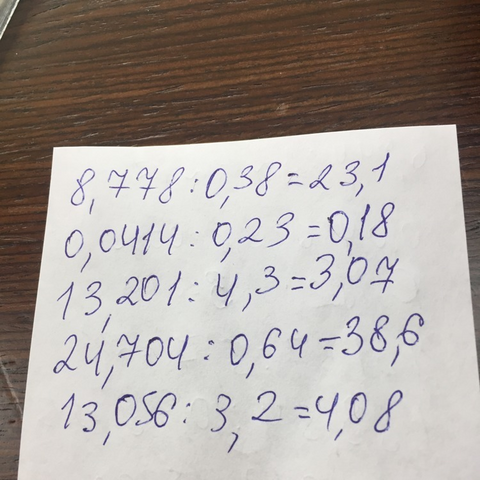 8,778:0,38=23,1
0,0414:0,23=0,18
13,201:4,3=3,07
24,704:0,64=38,6
13,056:3,2=4,08